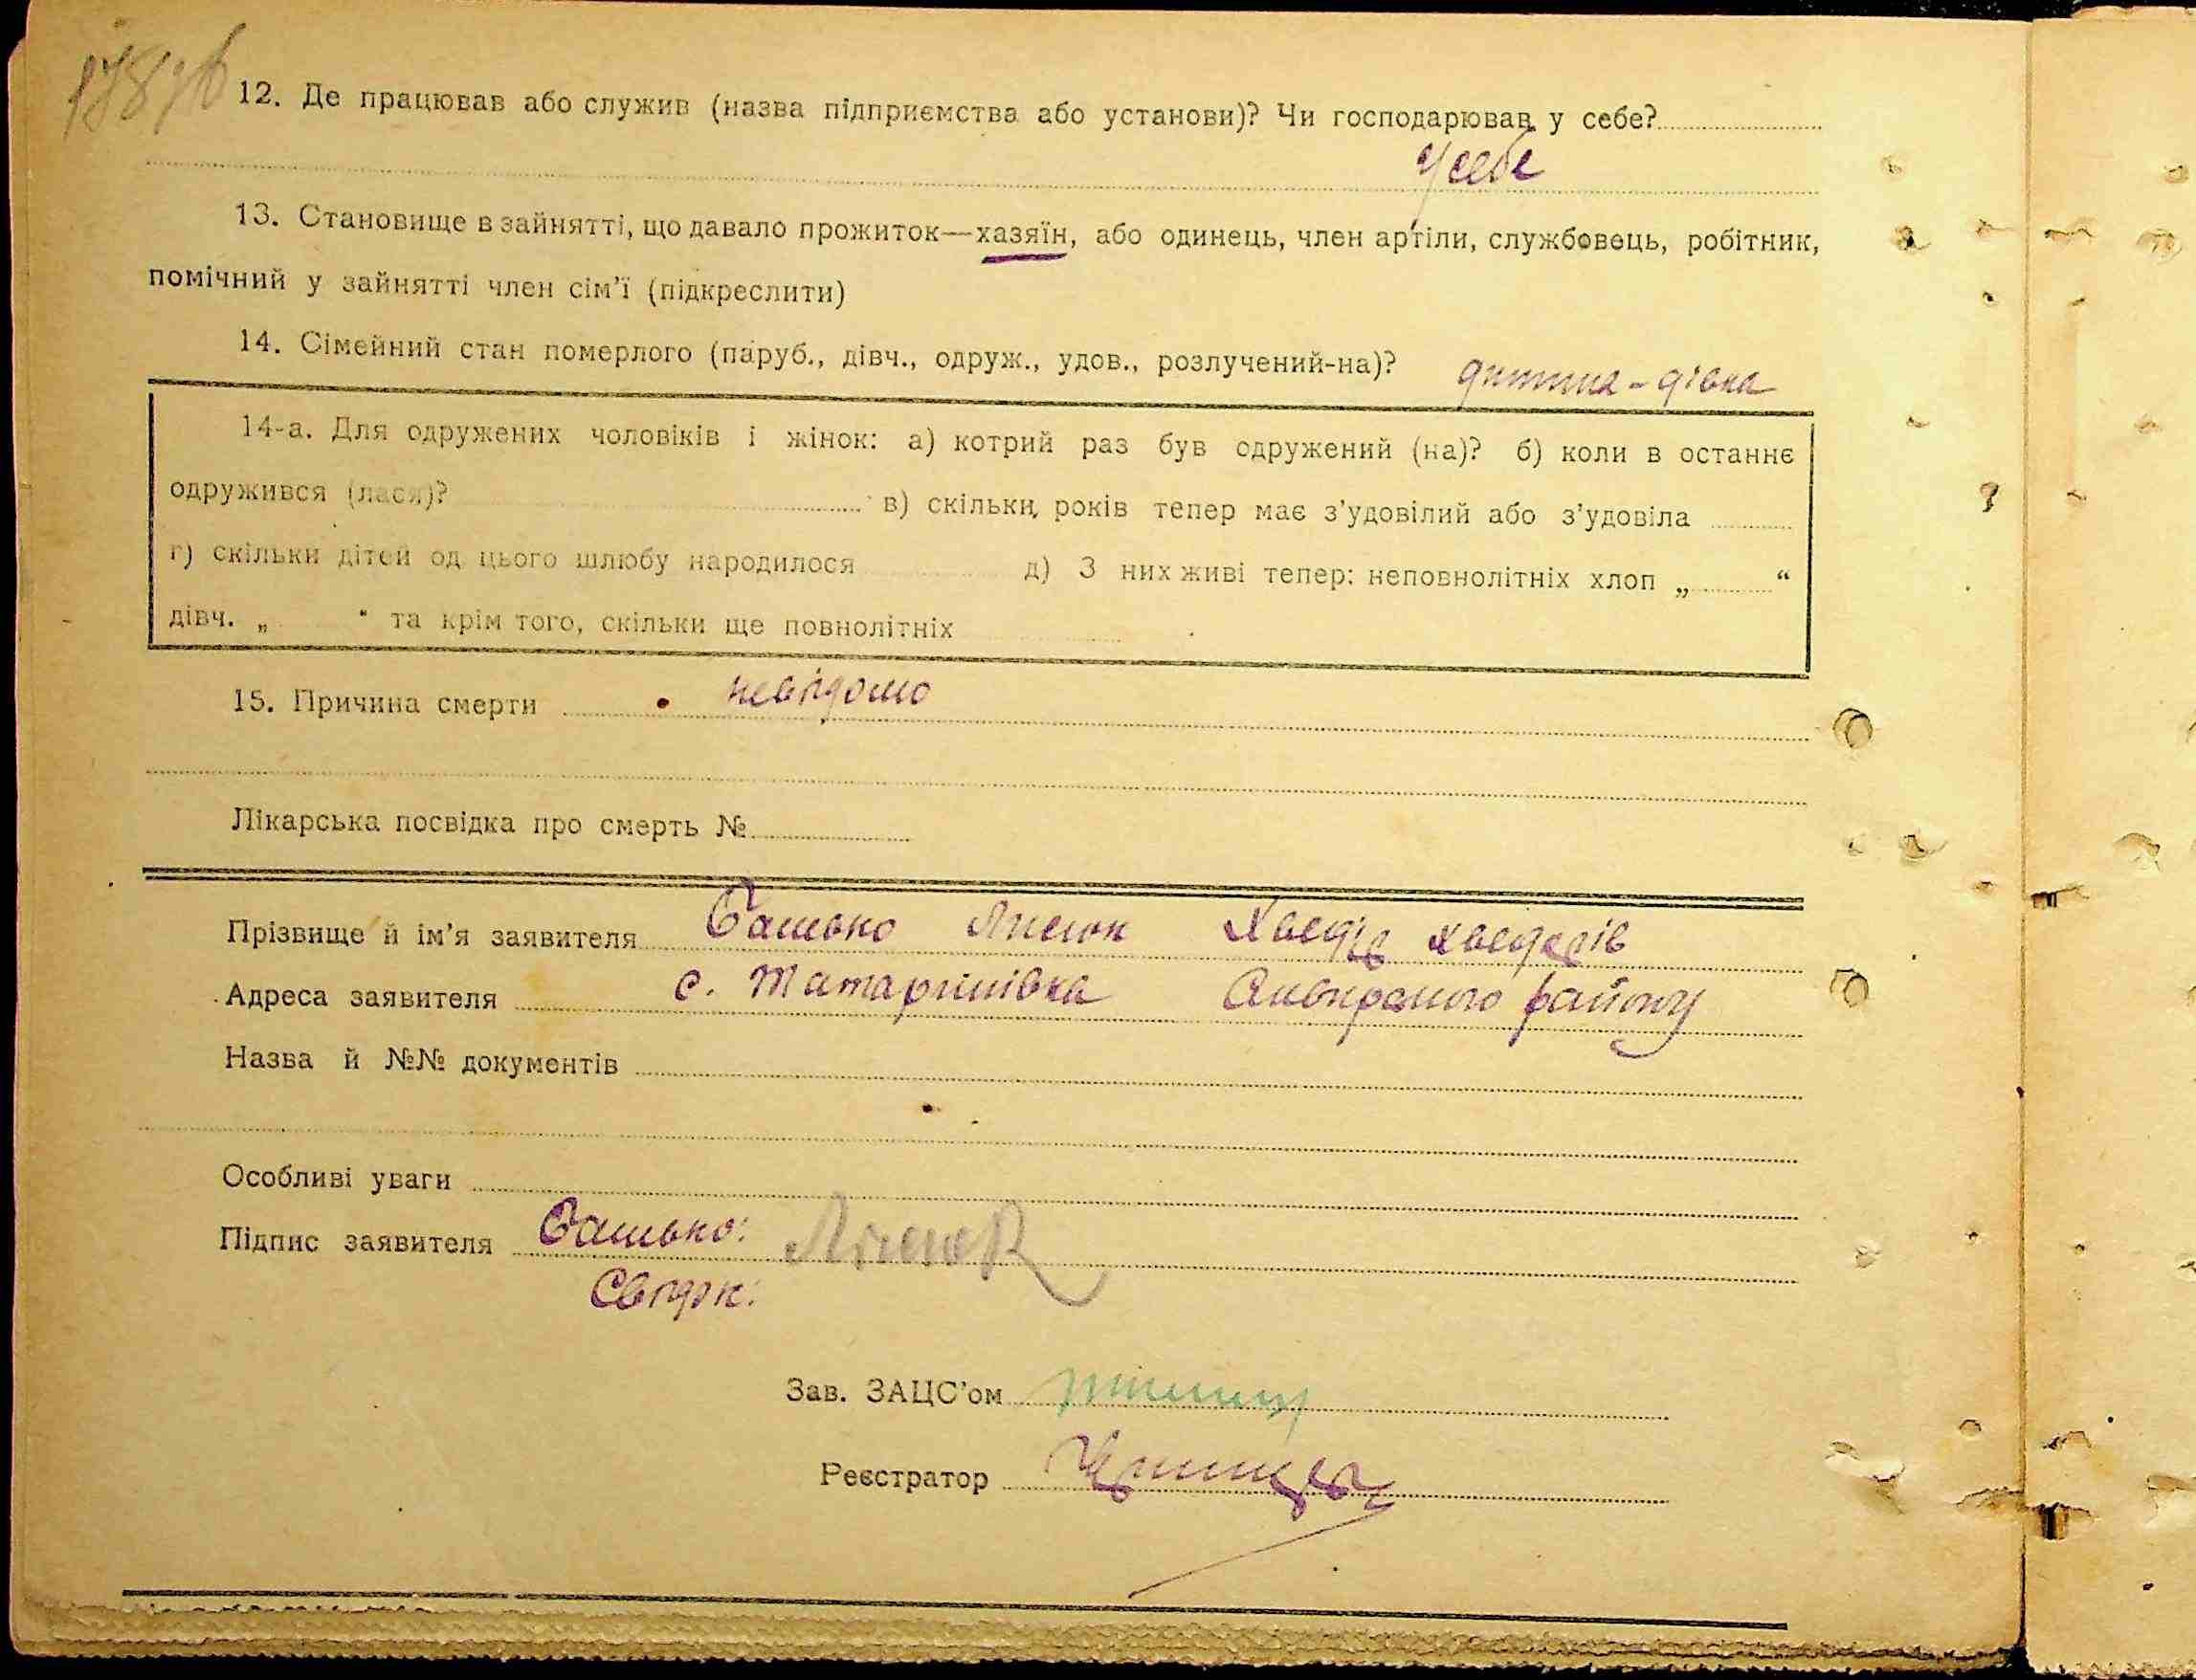 12. Де працював або служив (назва підприємства або установи)? Чи господарював у себе?
у себе
13. Становище в зайнятті, що давало прожиток—хазяїн, або одинець, член артіли, службовець, робітник,
помічний у зайнятті член сім’ї (підкреслити)
14. Сімейний стан померлого (паруб., дівч., одруж., удов., розлучений-на)? дитина - дівка
14-а. Для одружених чоловіків і жінок: а) котрий раз був одружений (на)? б) коли в останнє
одружився (лася)? в) скільки років тепер має з’удовілий або з’удовіла
г) скільки дітей од цього шлюбу народилося д) З них живі тепер: неповнолітніх хлоп „ “
дівч. „ “ та крім того, скільки ще повнолітніх
15. Причина смерти невідомо
Лікарська посвідка про смерть №
Прізвище й ім’я заявителя Батько Хведір Хведорів
Адреса заявителя с. Татаринівка Сквирського району
Назва й №№ документів
Особливі уваги
Підпис заявителя Батько:
Свідок:
Зав. ЗАЦС’ом
Реєстратор